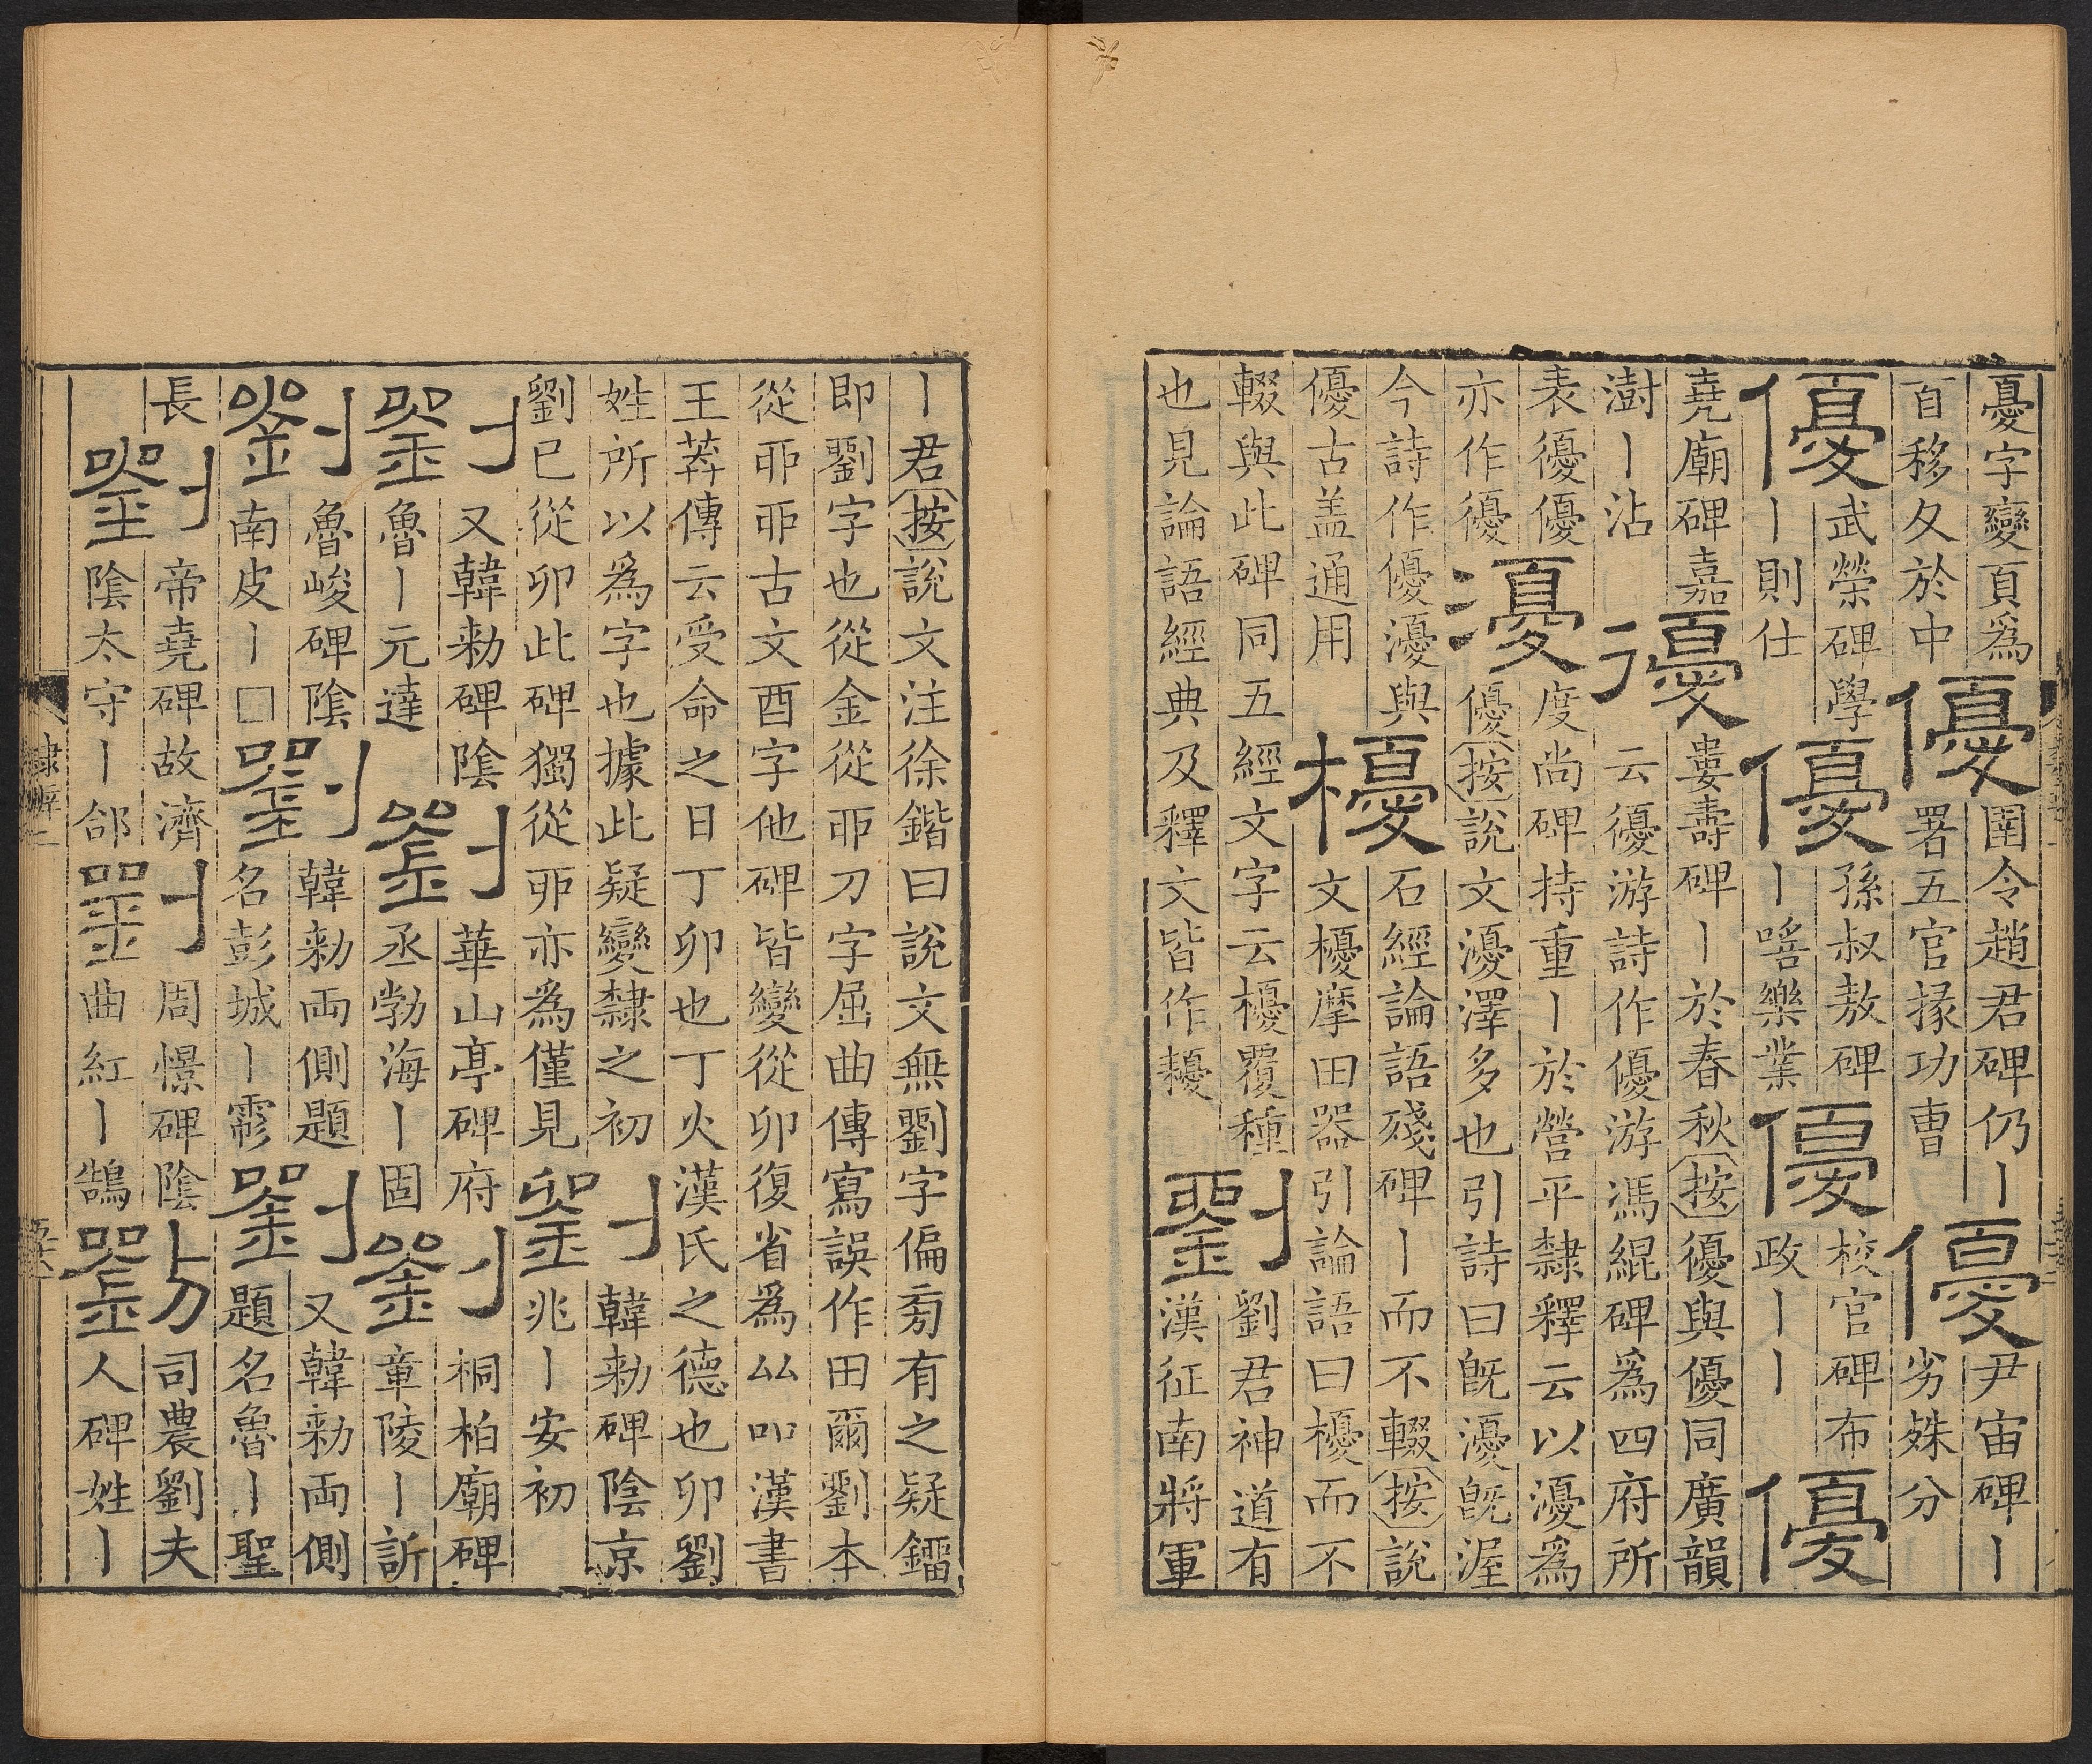 憂字變頁爲
百移夊於中
優
圉令趙君碑仍丨
署五官掾功曹
優
尹宙碑丨
劣殊分
優
武榮碑學
丨則仕
優
孫叔敖碑
丨喑樂業
優
校官碑布
政丨丨
優
堯廟碑嘉
澍丨沾
優
婁壽碑丨於春秋按優與優同廣韻
云優游詩作優游馮緄碑爲四府所
表優優
亦作優
瀀
度尚碑持重丨於營平隸釋云以瀀爲
優按說文瀀澤多也引詩曰旣瀀旣渥
今詩作優瀀與
優古盖通用
櫌
石經論語殘碑丨而不輟按說
文櫌摩田器引論語曰櫌而不
輟與此碑同五經文字云櫌覆種
也見論語經典及釋文皆作耰
劉
劉君神道有
漢征南將軍
丨君按說文注徐鍇曰說文無劉字偏旁有之疑鐂
即劉字也從金從丣刀字屈曲傳寫誤作田爾劉本
從丣丣古文酉字他碑皆變從卯復省爲厸吅漢書
王莽傳云受命之日丁卯也丁火漢氏之德也卯劉
姓所以爲字也據此疑變隸之初
劉已從卯此碑獨從丣亦爲僅見
劉
韓勑碑陰京
兆丨安初
劉
又韓勑碑陰
魯丨元達
劉
華山亭碑府
丞勃海丨固
劉
桐柏廟碑
章陵丨訢
劉
魯峻碑陰
南皮丨□
劉
韓勑兩側題
名彭城丨彫
劉
又韓勑兩側
題名魯丨聖
長
劉
帝堯碑故濟
陰太守丨郃
劉
周憬碑陰
曲紅丨鵠
劉
司農劉夫
人碑姓丨
隸辨二